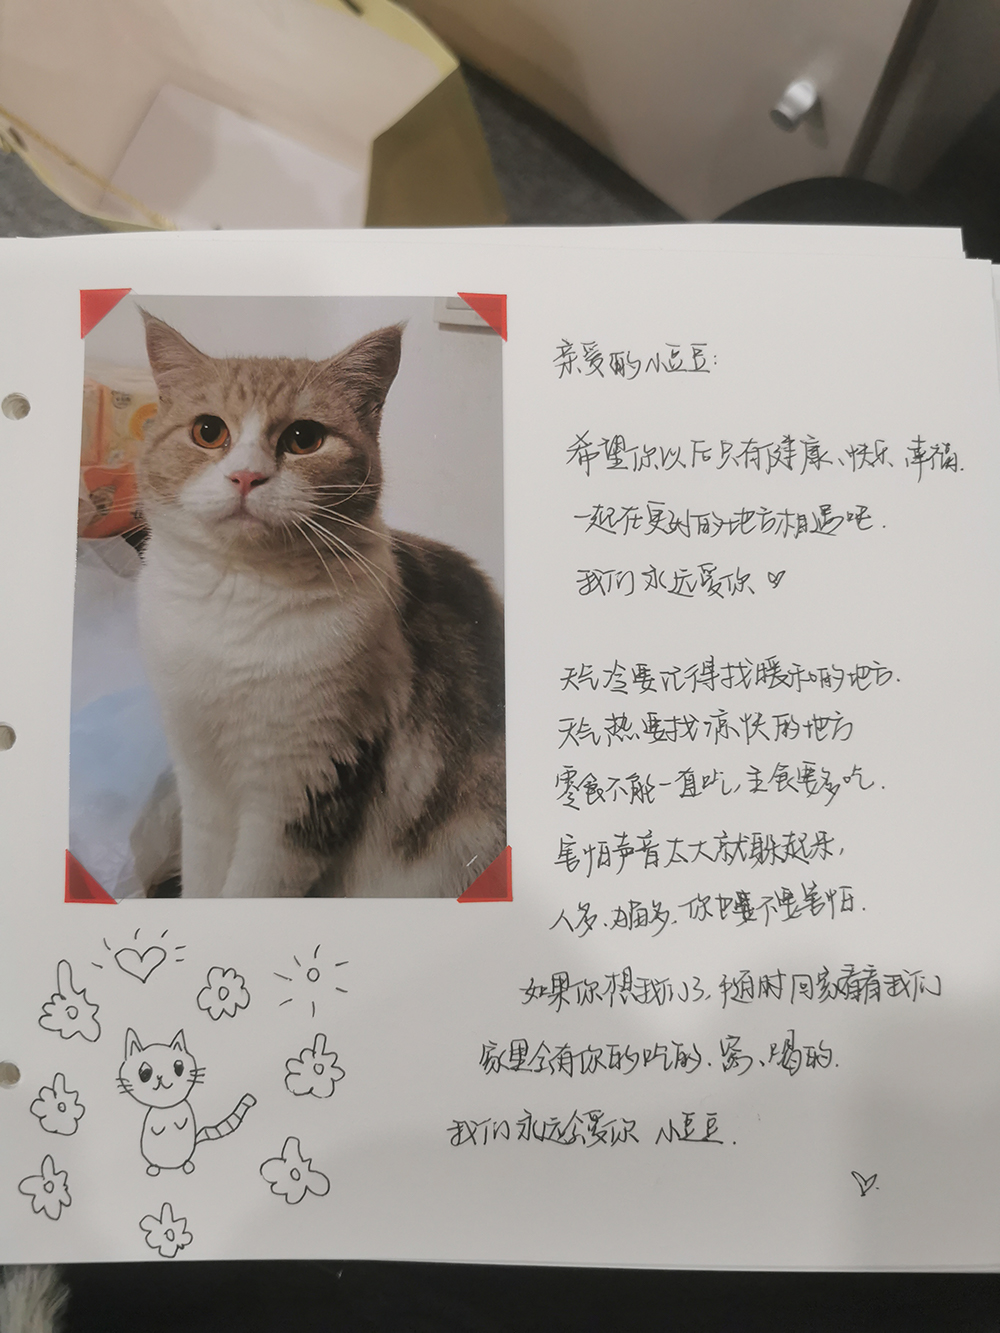 亲爱的小豆豆：
希望你以后只有健康、快乐、幸福.
一起在更好的地方相遇吧.
我们永远爱你♡
天气冷要记得找暖和的地方.
天气热要找凉快的地方
零食不能一直吃，主食要多吃.
害怕声音太大就躲起来，
人多、猫多、你也要不要害怕.
如果你想我们了，随时回家看看我们
家里会有你的吃的、窝、喝的.
我们永远会爱你 小豆豆.